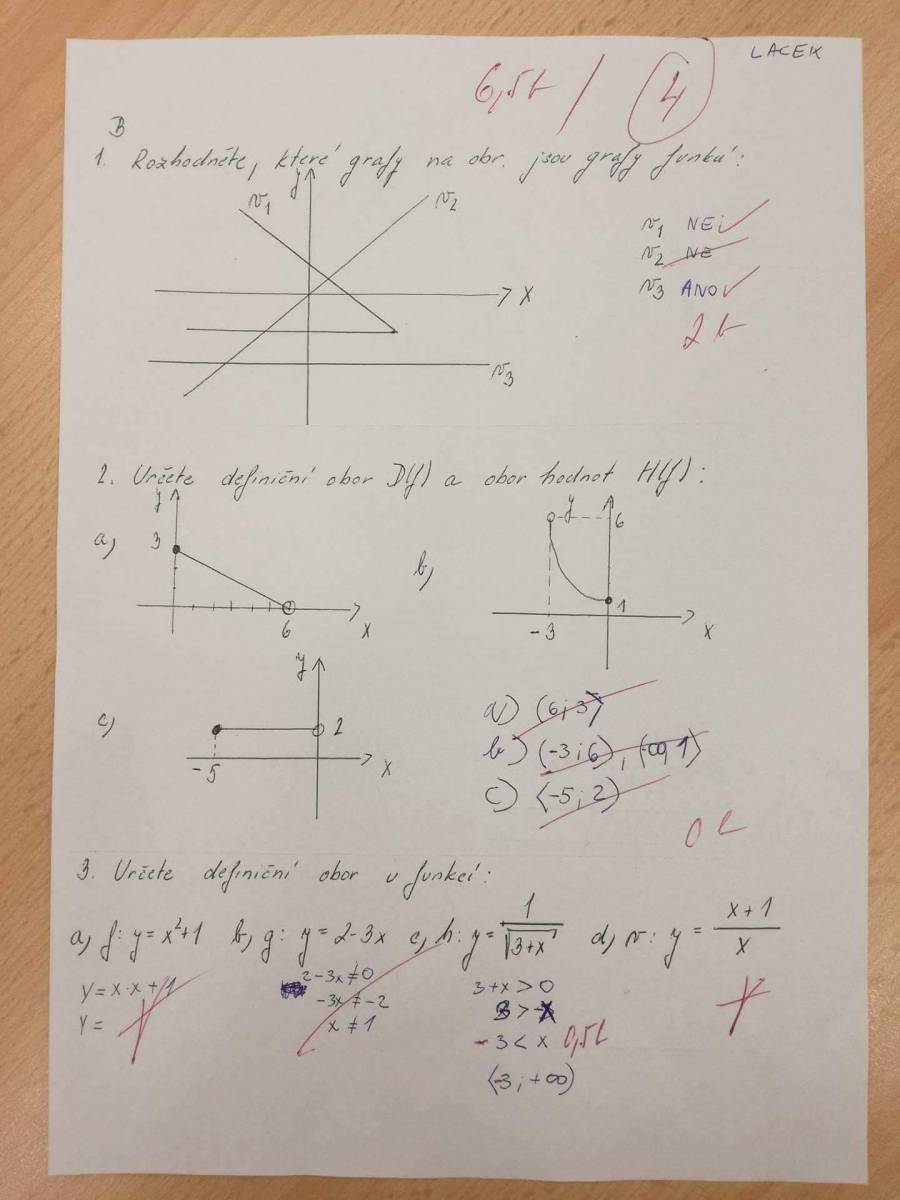 LACEK
6,5b / 4
B
1. Rozhodněte, které grafy na obr. jsou grafy funkcí:
y
r1
r2
x
r3
r1 NE
r2 NE
r3 ANO
2 b
2. Určete definiční obor D(f) a obor hodnot H(f):
a,
y
3
6
x
b,
y
6
1
-3
x
c,
y
2
-5
x
a) (6;3⟩
b) (-3;6), (-∞,1⟩
c) ⟨-5;2)
0 b
3. Určete definiční obor u funkcí:
a, f: y = x²+1 b, g: y = 2-3x c, h: y = 1/√(3+x) d, r: y = (x+1)/x
y = x·x + 1
y =
2-3x ≠ 0
-3x ≠ -2
x ≠ 1
3+x > 0
3 > -x
-3 < x 0,5b
⟨-3; +∞)